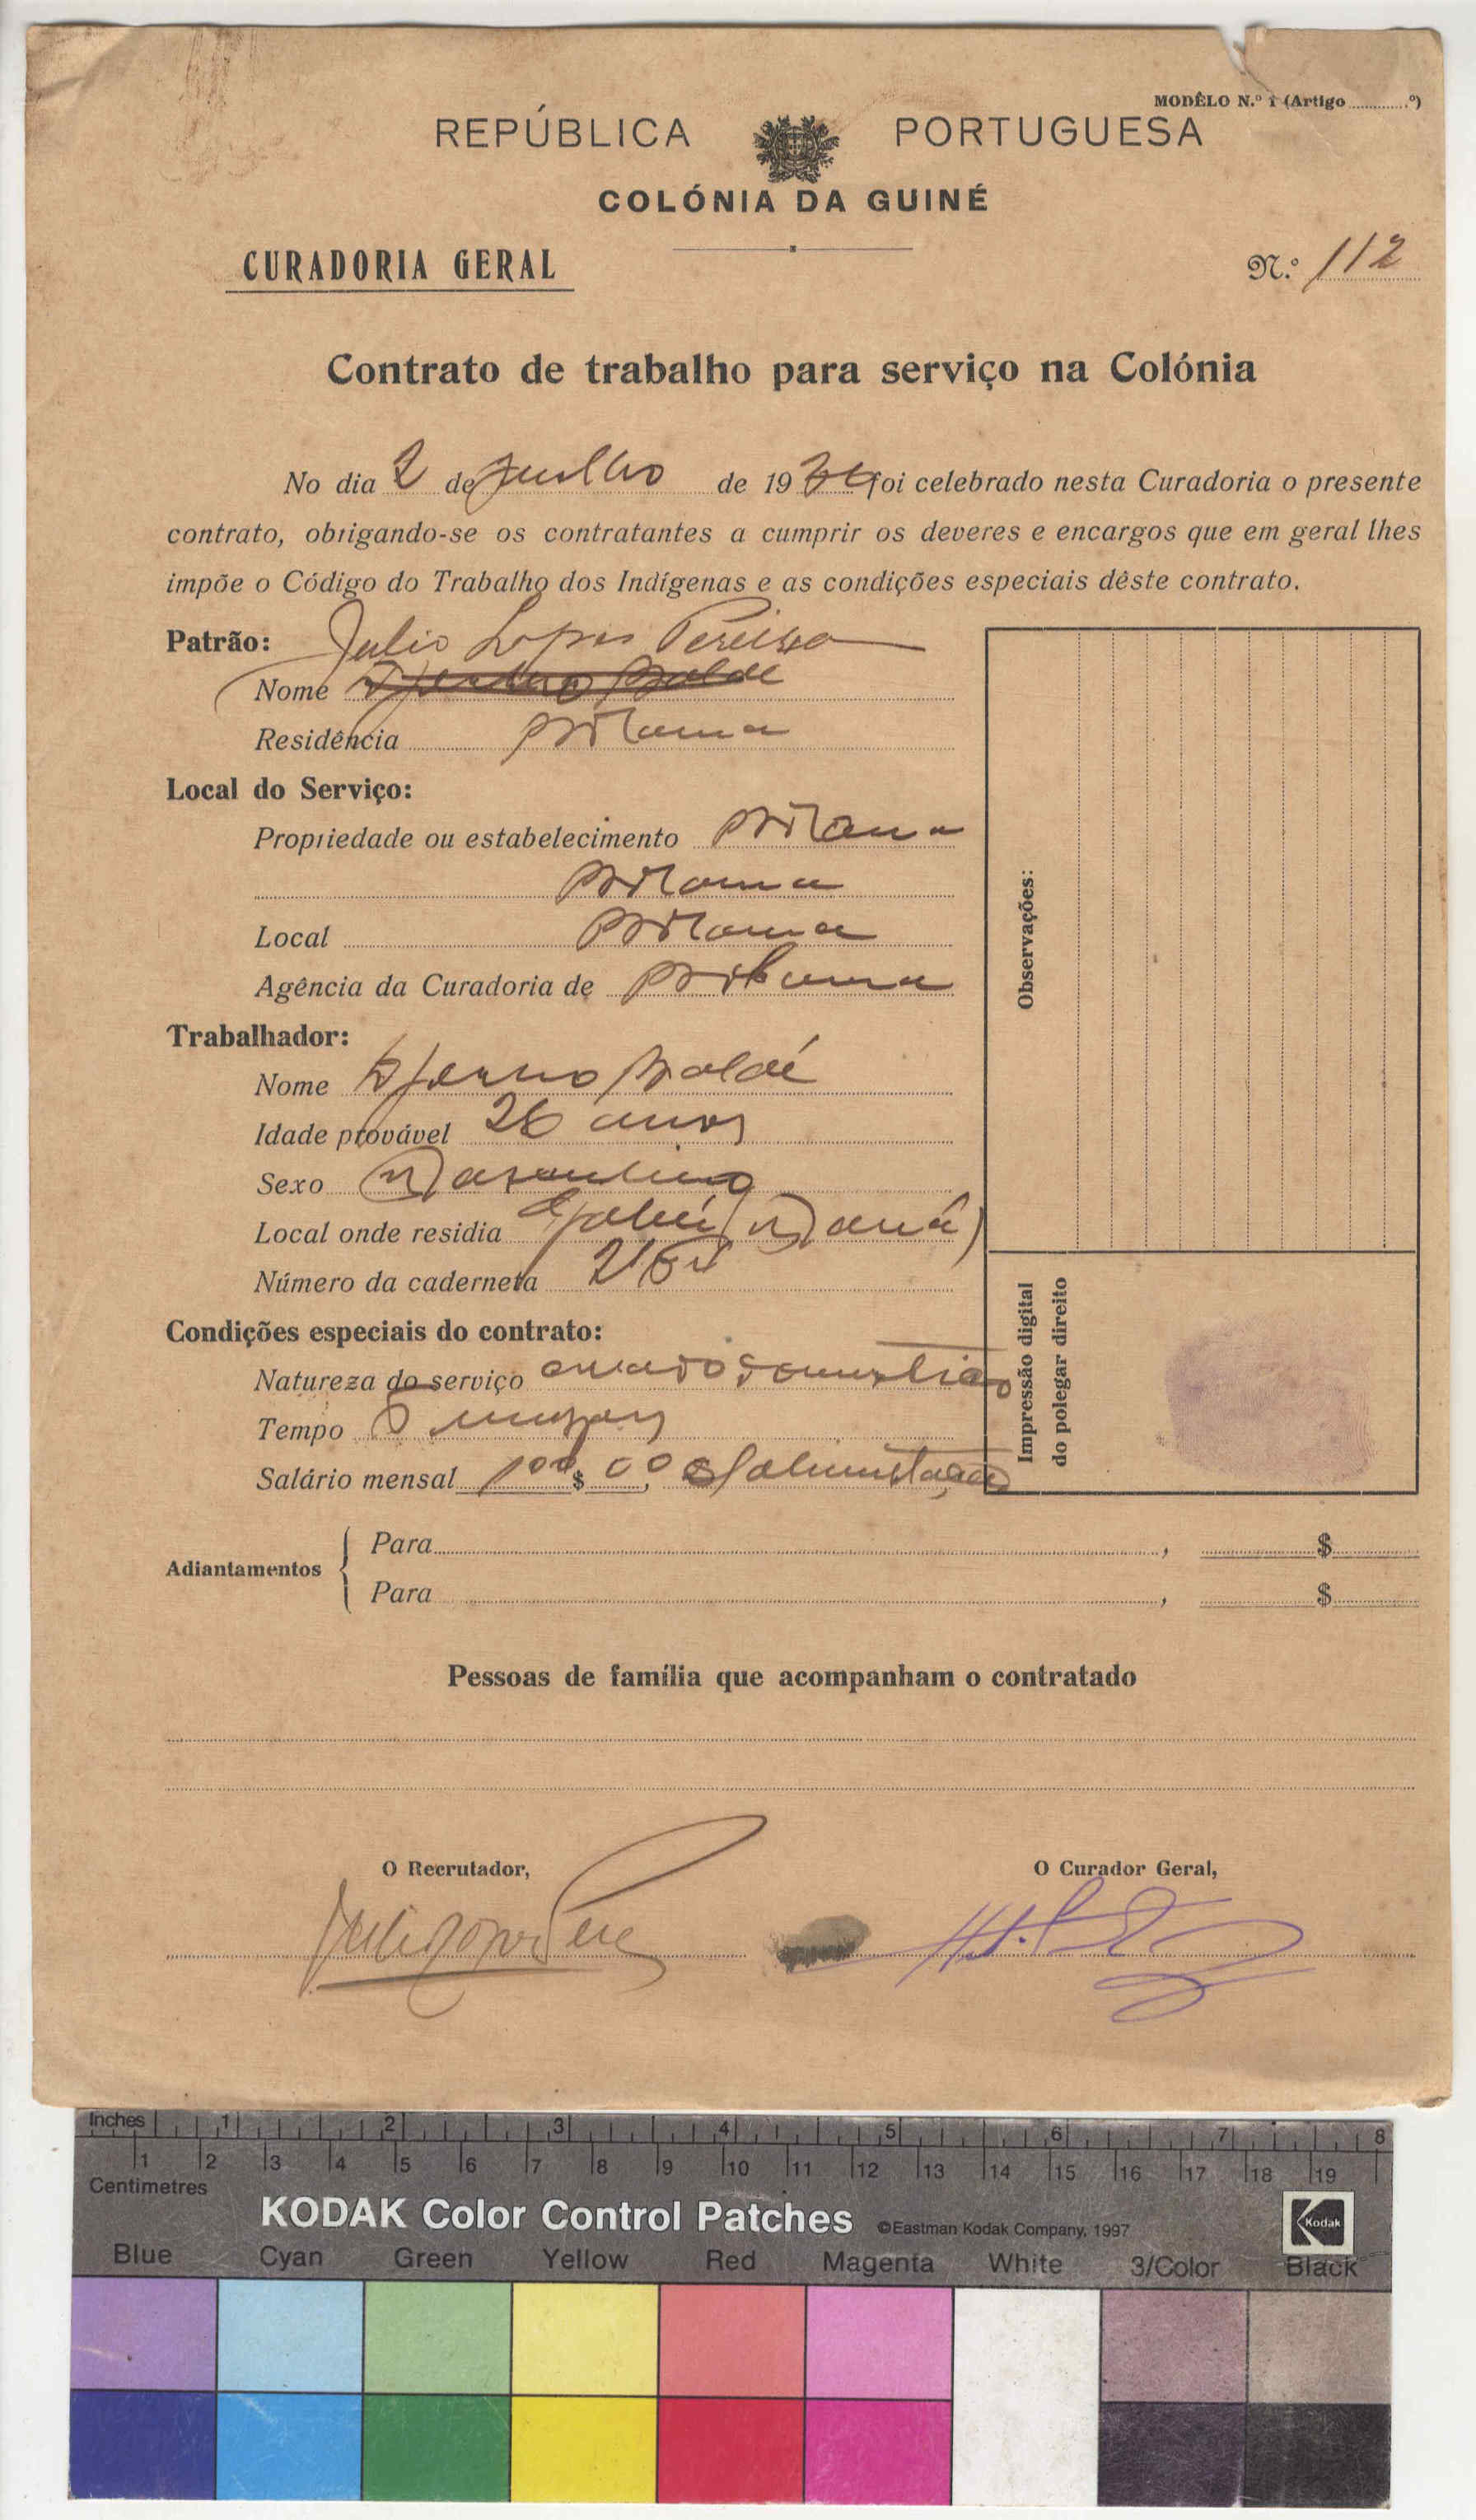 MODÊLO N.º 1 (Artigo ............º)
REPÚBLICA PORTUGUESA
COLÓNIA DA GUINÉ
CURADORIA GERAL
N.º 112
Contrato de trabalho para serviço na Colónia
No dia 2 de Julho de 19 foi celebrado nesta Curadoria o presente
contrato, obrigando-se os contratantes a cumprir os deveres e encargos que em geral lhes
impõe o Código do Trabalho dos Indígenas e as condições especiais dêste contrato.
Patrão: Julio Lopes Pereira
Nome Baldé
Residência Bolama
Local do Serviço:
Propriedade ou estabelecimento Bolama
Bolama
Local Bolama
Agência da Curadoria de Bolama
Trabalhador:
Nome Baldé
Idade provável 26 anos
Sexo Masculino
Local onde residia Gabú
Número da caderneta
Condições especiais do contrato:
Natureza do serviço creado domestico
Tempo 6 mezes
Salário mensal 100$00 alimentação
Observações:
Impressão digital
do polegar direito
Adiantamentos
Para , $
Para , $
Pessoas de família que acompanham o contratado
O Recrutador,
O Curador Geral,
Inches 1 2 3 4 5 6 7 8
1 2 3 4 5 6 7 8 9 10 11 12 13 14 15 16 17 18 19
Centimetres
KODAK Color Control Patches ©Eastman Kodak Company, 1997 Kodak
Blue Cyan Green Yellow Red Magenta White 3/Color Black